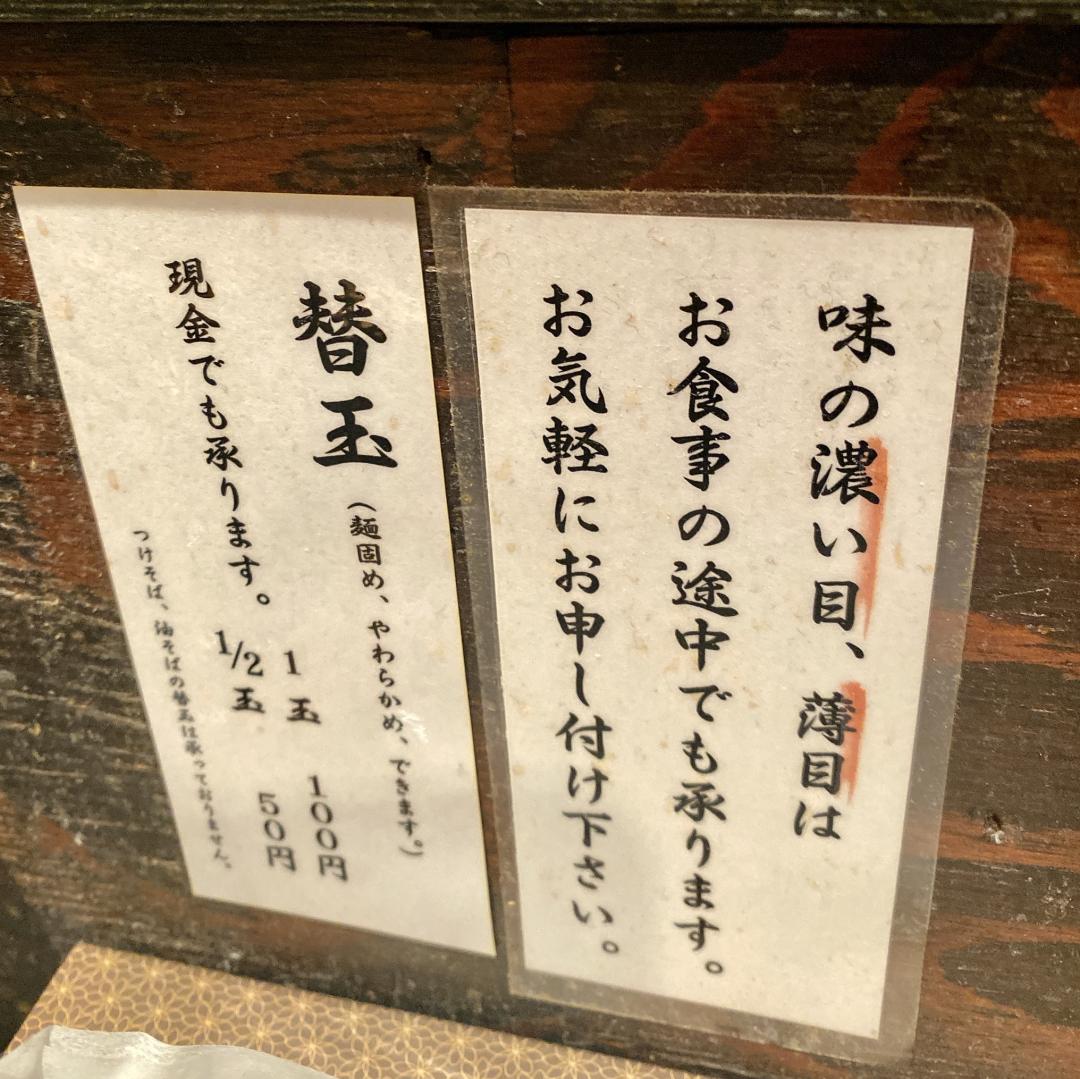 味の濃い目、薄目は
お食事の途中でも承ります。
お気軽にお申し付け下さい。
替玉（麺固め、やわらかめ、できます。）
1玉 100円
1/2玉 50円
現金でも承ります。
つけそば、油そばの替玉は承っておりません。